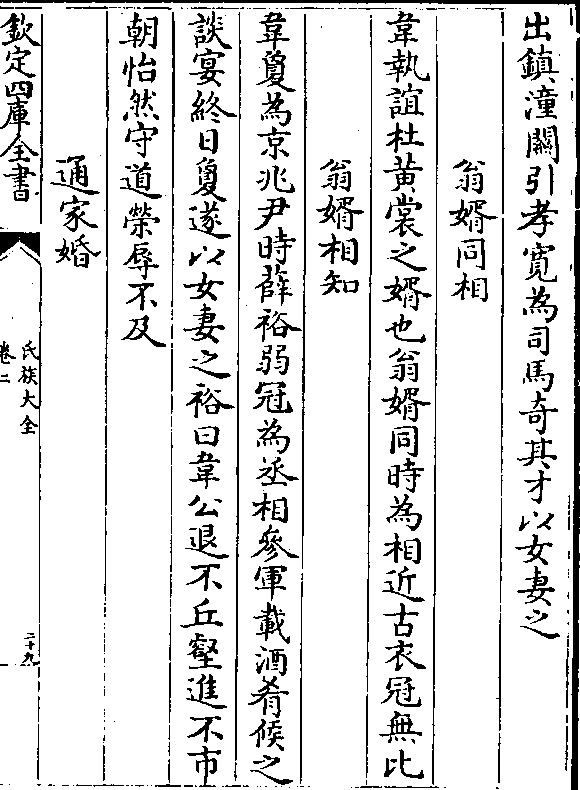 出鎮潼關引孝寛為司馬奇其才以女妻之
翁婿同相
韋執誼杜黄裳之婿也翁婿同時為相近古衣冠無比
翁婿相知
韋夐為京兆尹時薛裕弱冠為丞相參軍載酒肴候之
談宴終日夐遂以女妻之裕曰韋公退不丘壑進不市
朝怡然守道榮辱不及
通家婚
欽定四庫全書
氏族大全
卷二
二十九